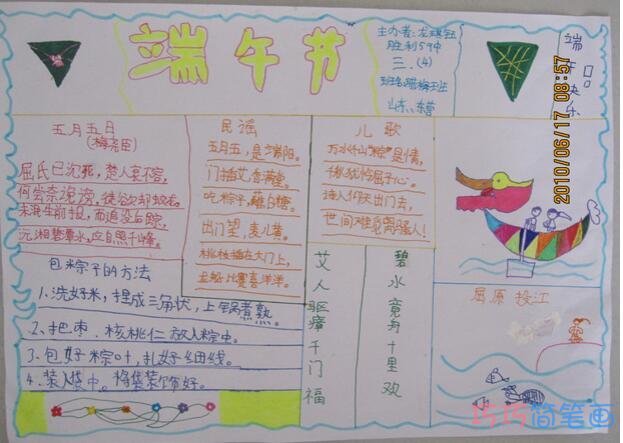 端午节
主办者:龙琪钰
胜利59中
三.(4)
山东.东营
端
午
快
乐
2010/06/17 08:57
五月五日
(梅尧臣)
屈氏已沉死,楚人哀不容,
何尝奈谗谤,徒欲却蛟龙,
未泯生前恨,而追没后踪,
沅湘碧潭水,应自照千峰。
民谣
五月五,是端阳。
门插艾,香满堂。
吃粽子,蘸白糖。
出门望,麦儿黄。
桃枝插在大门上,
龙船比赛喜洋洋。
儿歌
万水千山“粽”是情,
世间难觅
包粽子的方法
1.洗好米,捏成三角状,上锅煮熟。
2.把枣.核桃仁放入粽中。
3.包好粽叶,扎好细线。
4.装入袋中。将袋装饰好。
艾
人
驱
瘴
千
门
福
碧
水
竟
舟
十
里
欢
屈原投江
巧巧简笔画